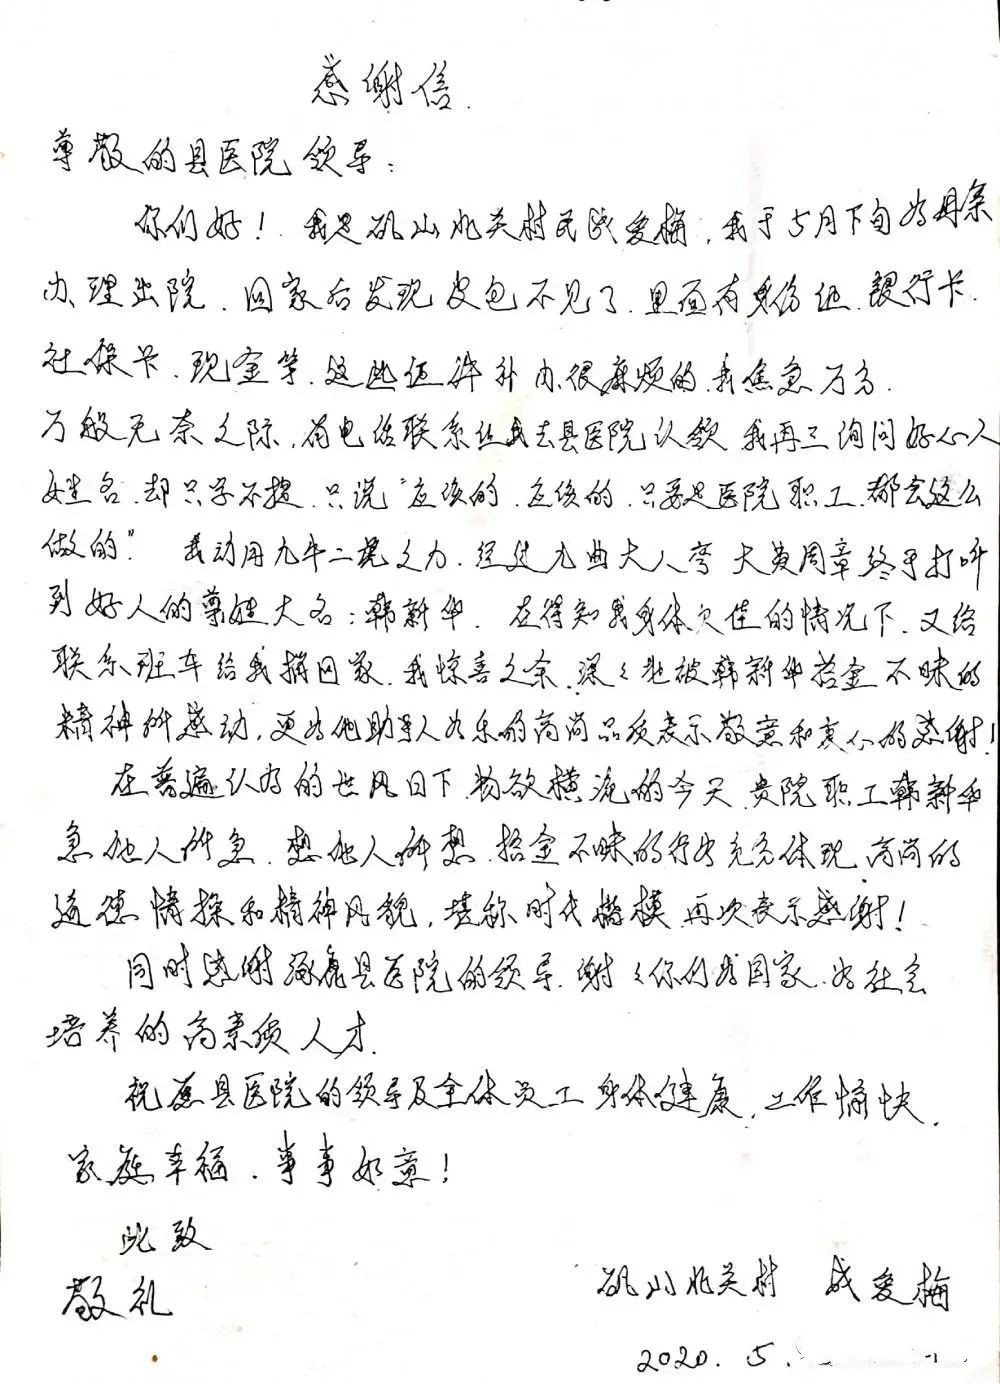 感谢信.
尊敬的县医院领导:
你们好!我是矾山北关村民成爱梅,我于5月下旬为母亲
办理出院.回家后发现皮包不见了.里面有身份证.银行卡.
社保卡.现金等.这些证件补办很麻烦的.我焦急万分.
万般无奈之际,有电话联系让我去县医院认领.我再三询问好心人
姓名.却只字不提.只说"应该的.应该的.只要是医院职工.都会这么
做的".我动用九牛二虎之力.经过九曲大八弯 大费周章终于打听
到好人的尊姓大名:韩新华.在得知我身体欠佳的情况下.又给
联系班车给我捎回家.我惊喜之余.深々地被韩新华拾金不昧的
精神所感动,更为他助人为乐的高尚品质表示敬意和衷心的感谢!
在普遍认为的世风日下.物欲横流的今天.贵院职工韩新华
急他人所急.想他人所想.拾金不昧的行为充分体现高尚的
道德情操和精神风貌,堪称时代楷模.再次表示感谢!
同时感谢涿鹿县医院的领导.谢々你们为国家.为社会
培养的高素质人才.
祝愿县医院的领导及全体员工身体健康.工作愉快.
家庭幸福.事事如意!
此致
敬礼
矾山北关村 成爱梅
2020.5.